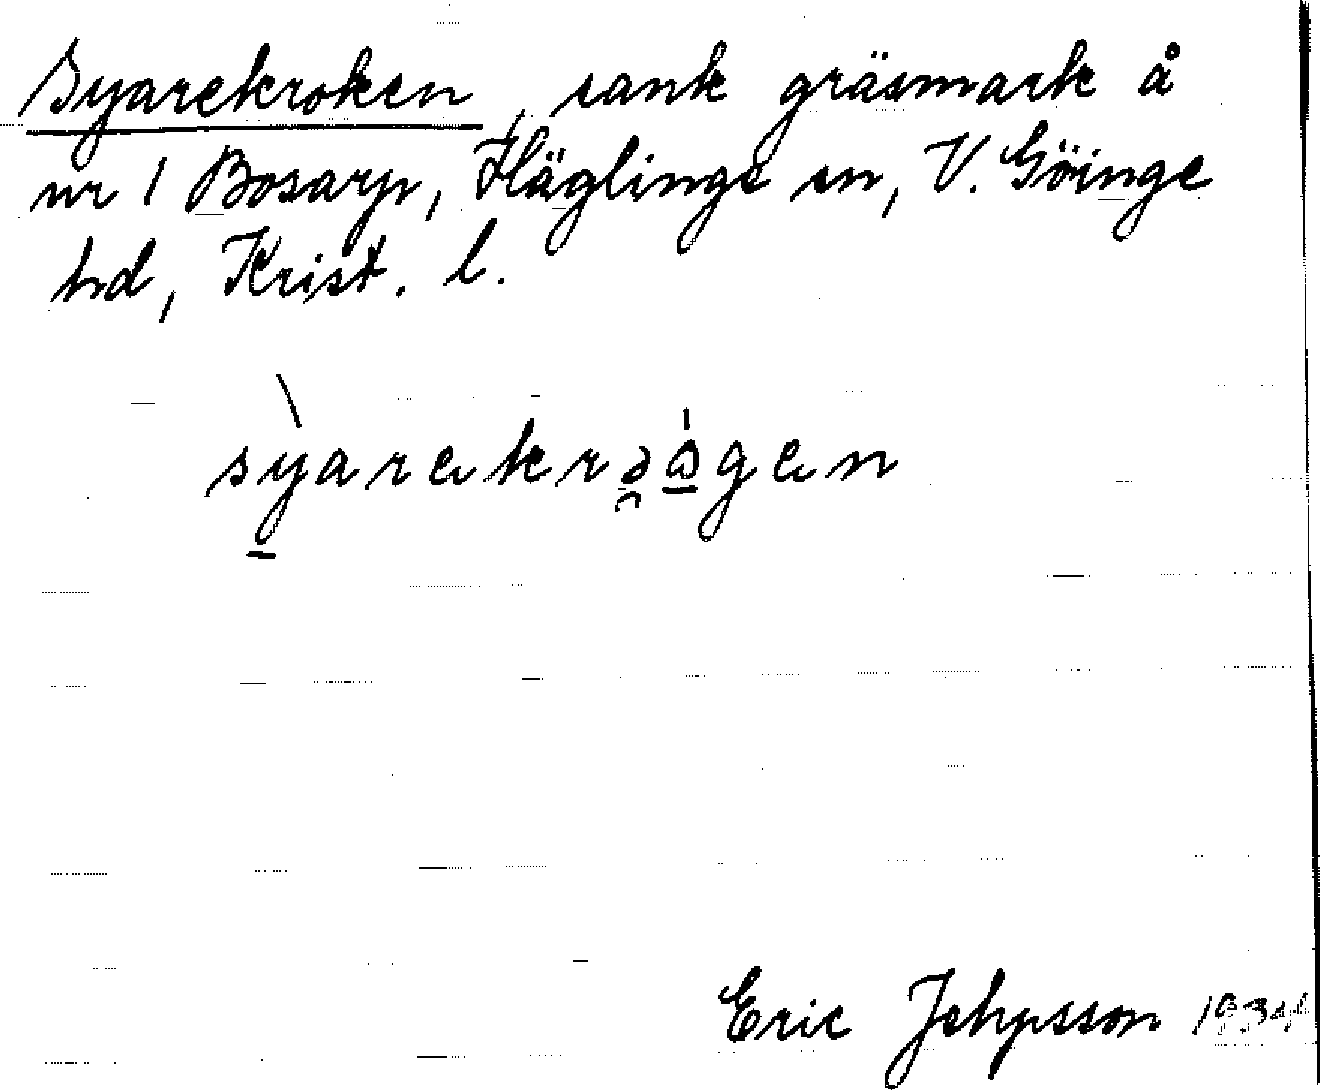 Syarekroken, sank gräsmark å
nr 1 Bosarp, Häglinge sn, V. Göinge
hd, Krist. l.
syarekrəågen
Eric Jehpsson 1934